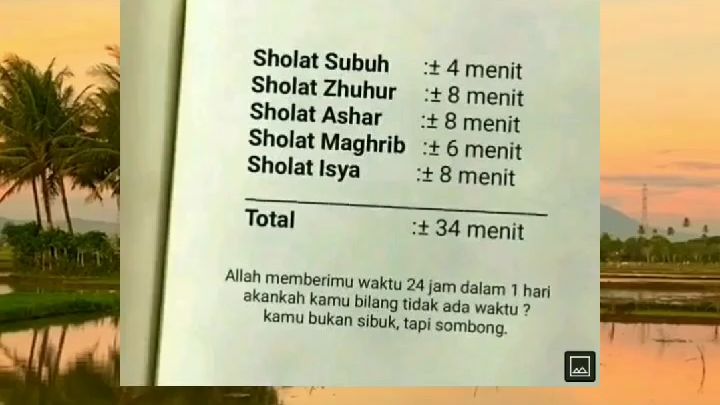 Sholat Subuh :± 4 menit
Sholat Zhuhur :± 8 menit
Sholat Ashar :± 8 menit
Sholat Maghrib :± 6 menit
Sholat Isya :± 8 menit
Total :± 34 menit
Allah memberimu waktu 24 jam dalam 1 hari
akankah kamu bilang tidak ada waktu ?
kamu bukan sibuk, tapi sombong.